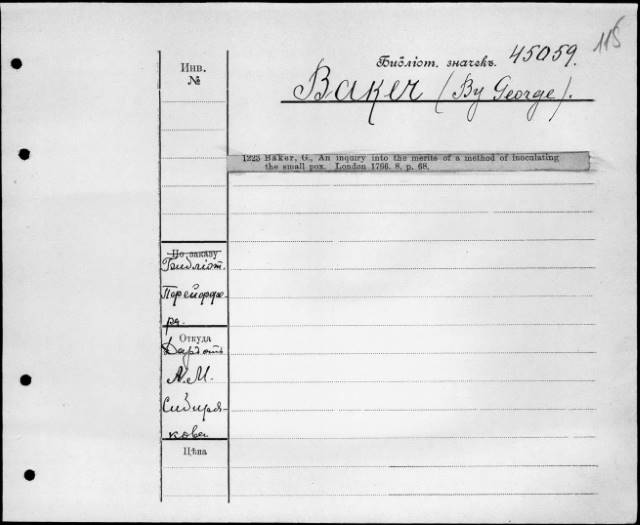 115
Библіот. значекъ. 45059.
Baker (By George).
Инв.
№
1223 Baker, G., An inquiry into the merits of a method of inoculating
the small pox. London 1766. 8. p. 68.
По заказу
Библіот.
Порейффе-
ра.
Откуда
Даръ отъ
А. М.
Сибиря-
кова
Цѣна